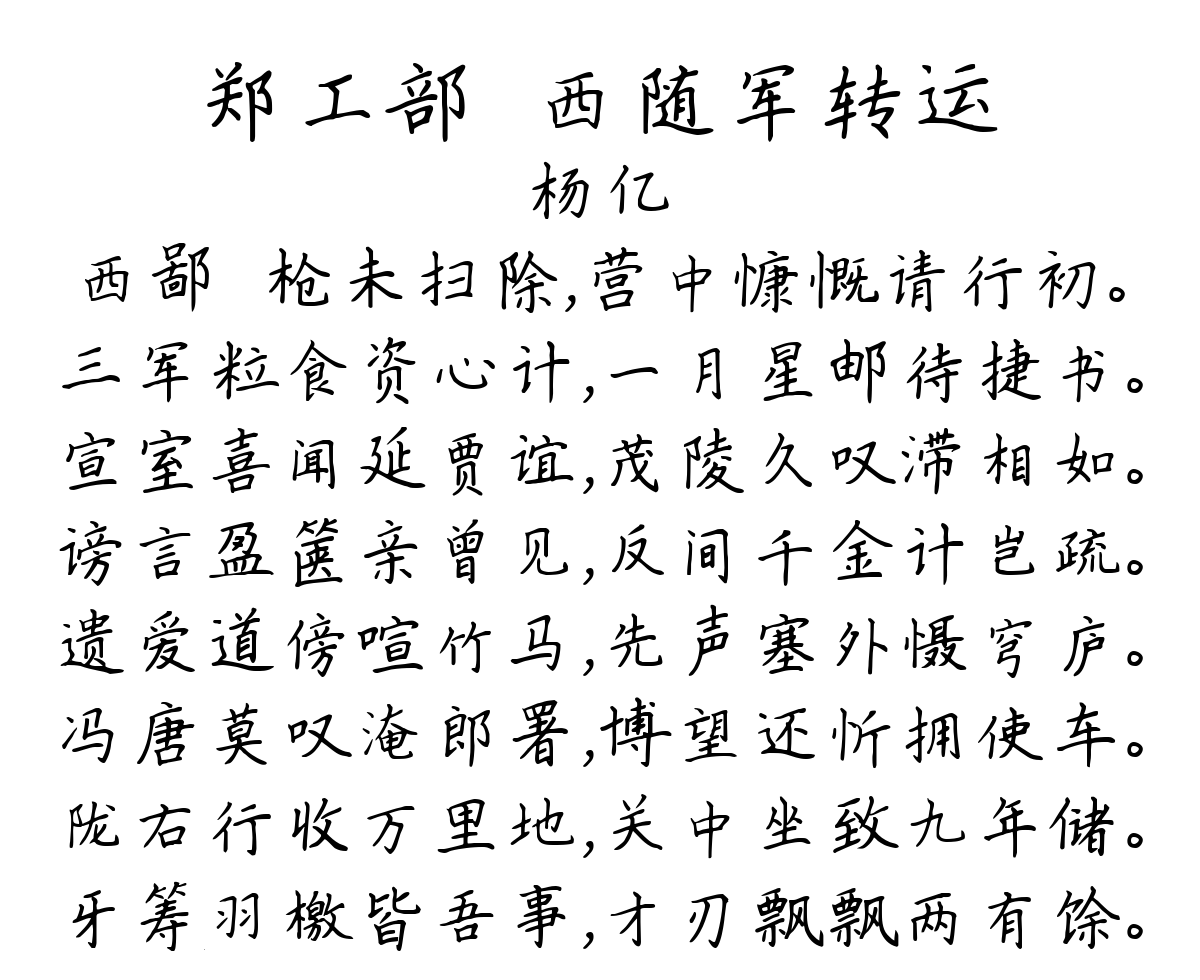 郑工部 西随军转运
杨亿
西鄙 枪未扫除,营中慷慨请行初。
三军粒食资心计,一月星邮待捷书。
宣室喜闻延贾谊,茂陵久叹滞相如。
谤言盈箧亲曾见,反间千金计岂疏。
遗爱道傍喧竹马,先声塞外慑穹庐。
冯唐莫叹淹郎署,博望还忻拥使车。
陇右行收万里地,关中坐致九年储。
牙筹羽檄皆吾事,才刃飘飘两有馀。